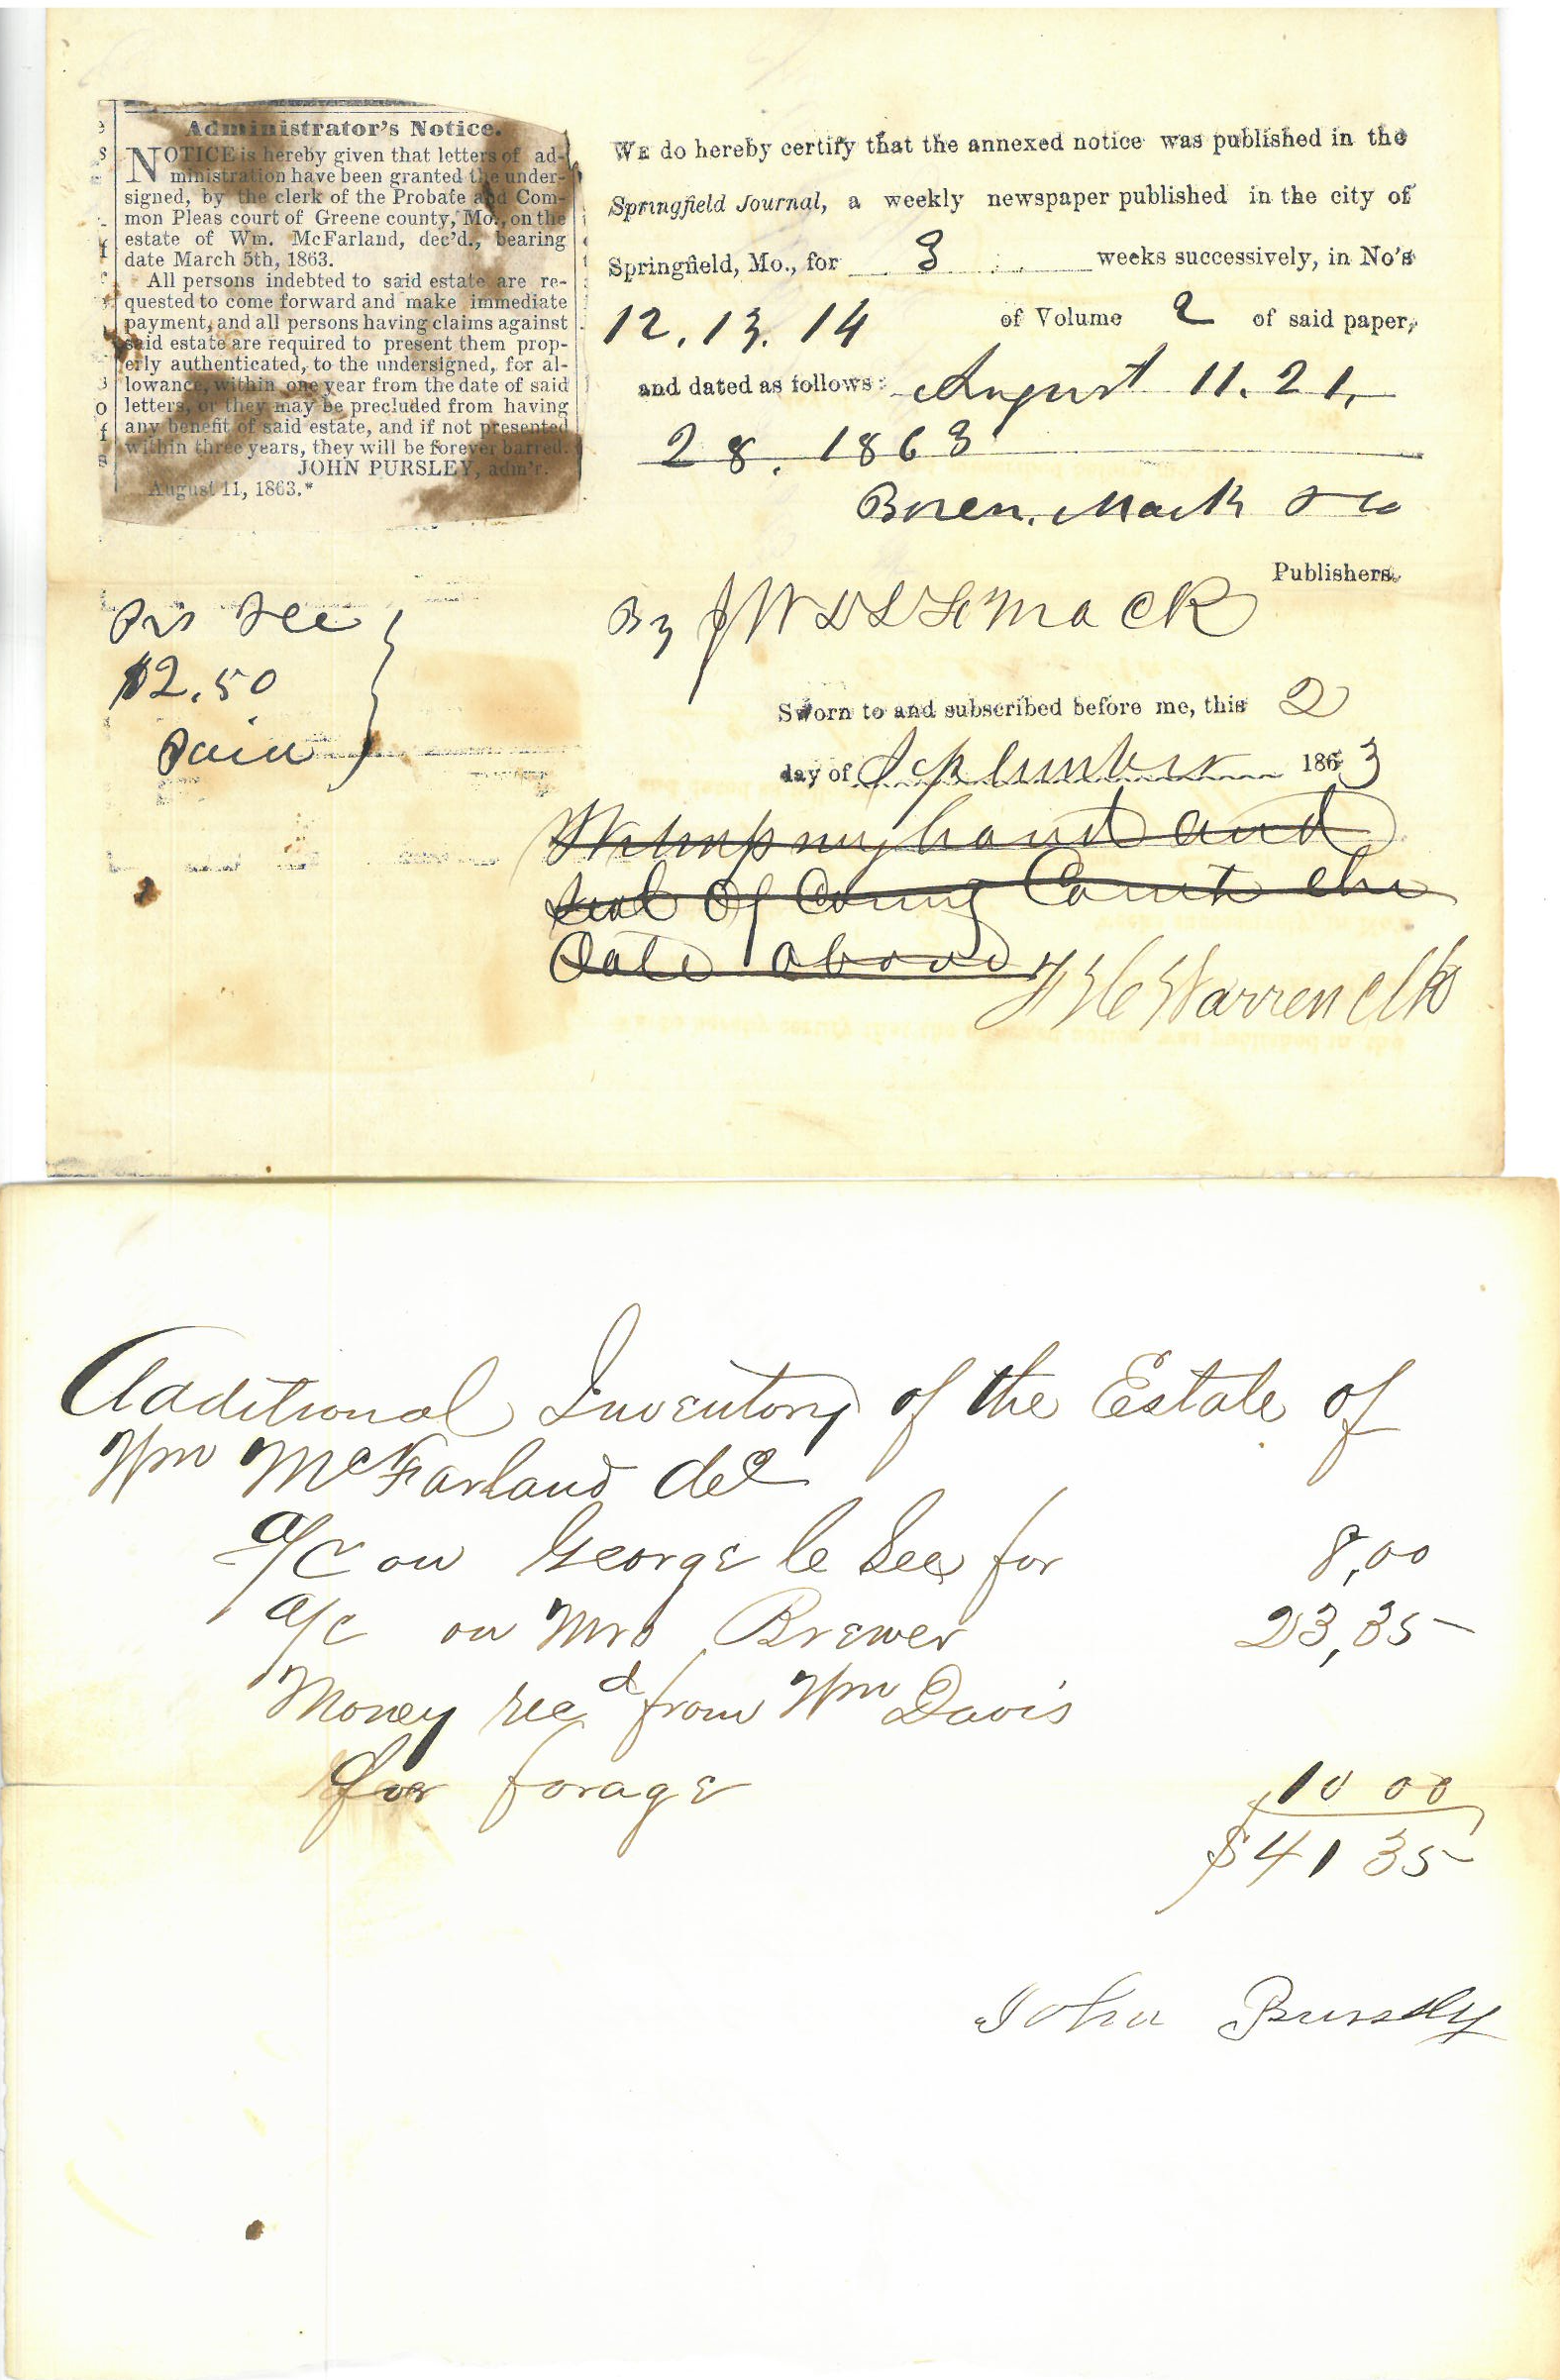 Administrator's Notice.
NOTICE is hereby given that letters of ad-
ministration have been granted the under-
signed, by the clerk of the Probate and Com-
mon Pleas court of Greene county, Mo., on the
estate of Wm. McFarland, dec'd., bearing
date March 5th, 1863.
All persons indebted to said estate are re-
quested to come forward and make immediate
payment, and all persons having claims against
said estate are required to present them prop-
erly authenticated, to the undersigned, for al-
lowance, within one year from the date of said
letters, or they may be precluded from having
any benefit of said estate, and if not presented
within three years, they will be forever barred.
JOHN PURSLEY, adm'r.
August 11, 1863.*
WE do hereby certify that the annexed notice was published in the
Springfield Journal, a weekly newspaper published in the city of
Springfield, Mo., for 3 weeks successively, in No's
12. 13. 14 of Volume 2 of said paper,
and dated as follows: August 11. 21,
28. 1863
Boren, Mack & Co
Publishers.
By Mack
Prs fee
$2.50
Paid
Sworn to and subscribed before me, this 2
day of September 1863
Witness my hand and
seal of County Court the
Date above
Warren Clk
Additional Inventory of the Estate of
Wm McFarland decd
a/c on George C See for 8,00
a/c on Mrs Brewer 23,35
Money recd from Wm Davis
for forage 10 00
$41 35
John Pursely